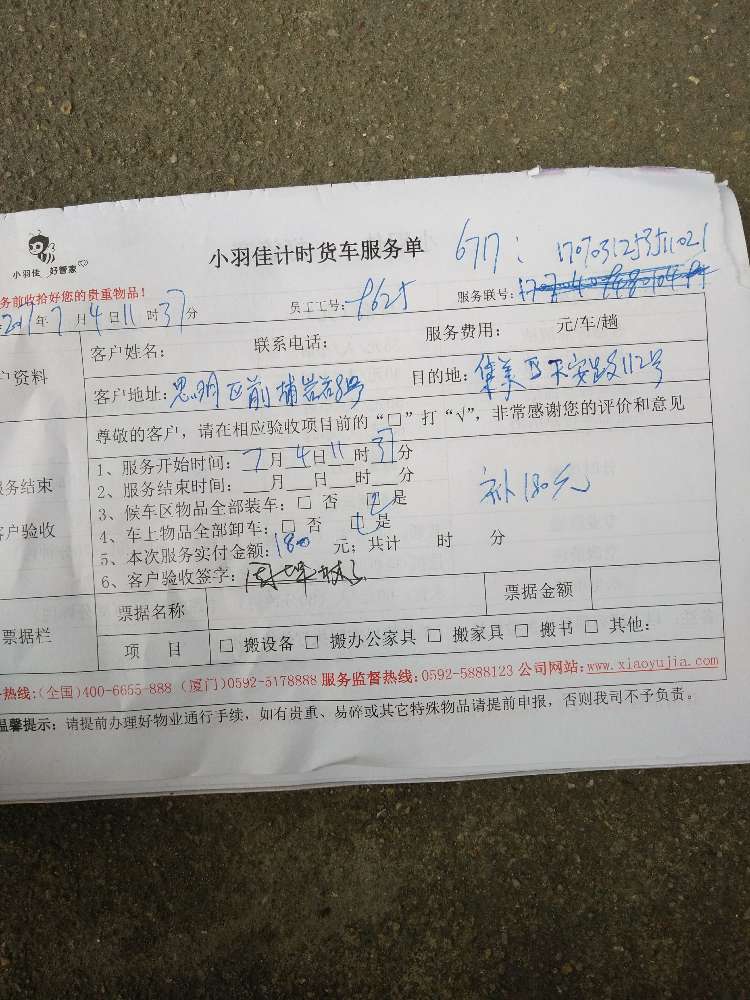 小羽佳 好管家
小羽佳计时货车服务单 6717:
务前收拾好您的贵重物品！ 员工工号: 9625 服务联号:
年7月4日11时37分
户资料 客户姓名: 联系电话: 服务费用: 元/车/趟
客户地址: 思明区前埔 目的地: 集美区 112号
尊敬的客户，请在相应验收项目前的“□”打“√”，非常感谢您的评价和意见
服务结束
客户验收
1、服务开始时间: 7月4日11时37分
2、服务结束时间: 月 日 时 分
3、候车区物品全部装车: □ 否 □ 是
补180元
4、车上物品全部卸车: □ 否 □ 是
5、本次服务实付金额: 180 元; 共计 时 分
6、客户验收签字:
票据栏 票据名称 票据金额
项 目 □ 搬设备 □ 搬办公家具 □ 搬家具 □ 搬书 □ 其他:
热线:(全国)400-6655-888 (厦门)0592-5178888 服务监督热线: 0592-5888123 公司网站: www.xiaoyujia.com
温馨提示: 请提前办理好物业通行手续，如有贵重、易碎或其它特殊物品请提前申报，否则我司不予负责。